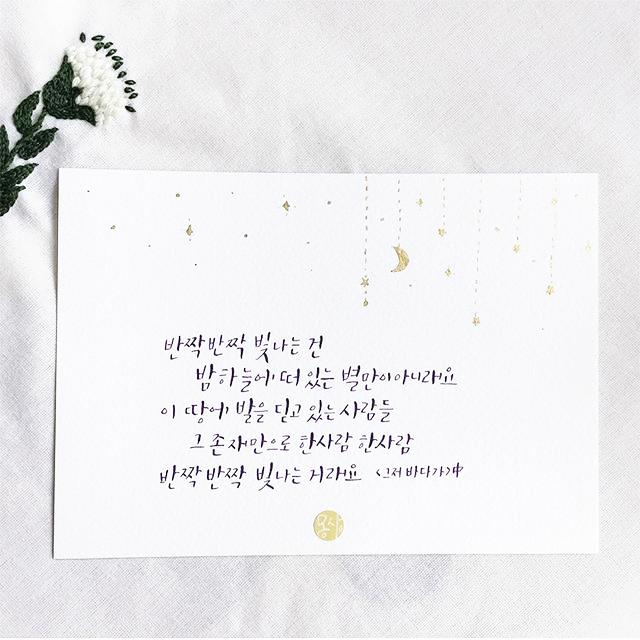 반짝반짝 빛나는 건
밤하늘에 떠 있는 별만이 아니라요
이 땅에 발을 딛고 있는 사람들
그 존재만으로 한사람 한사람
반짝반짝 빛나는 거라요 <그저 바다가>中